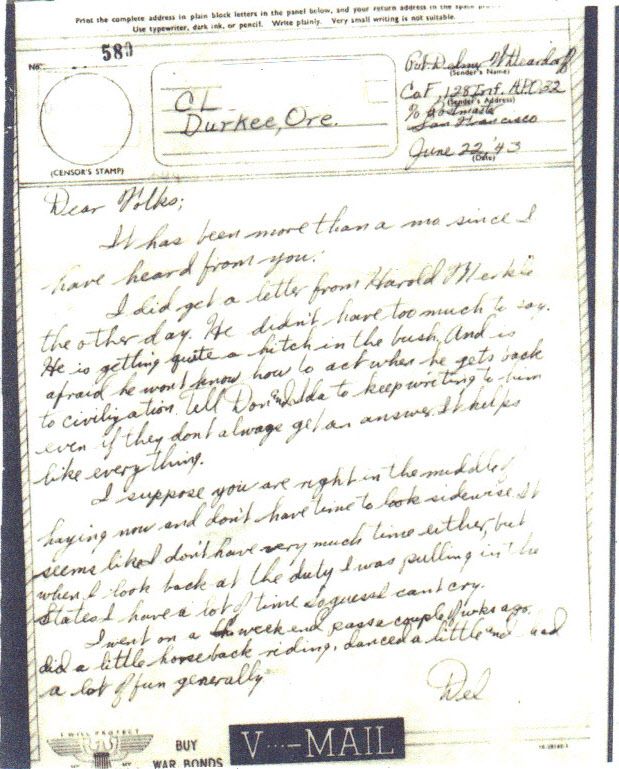 Print the complete address in plain block letters in the panel below, and your return address in the space
Use typewriter, dark ink, or pencil. Write plainly. Very small writing is not suitable.
No.
589
(CENSOR'S STAMP)
CL
Durkee, Ore.
Pvt. Delmer
(Sender's Name)
Co F, 128 Inf. APO 22
(Sender's Address)
% Postmaster
San Francisco
June 22, '43
(Date)
Dear Folks;
It has been more than a mo since I
have heard from you.
I did get a letter from Harold
the other day. He didn't have too much to say.
He is getting quite a hitch in the bush. And is
afraid he wont know how to act when he gets back
to civilization. Tell Don and Ida to keep writing to him
even if they dont always get an answer. It helps
like everything.
I suppose you are right in the middle of
haying now and don't have time to look sidewise. It
seems like I don't have very much time either, but
when I look back at the duty I was pulling in the
States I have a lot of time so guess I cant cry.
I went on a week end pass a couple of wks ago
did a little horseback riding, danced a little and had
a lot of fun generally
Del
I WILL PROTECT
BUY
WAR BONDS
V···—MAIL